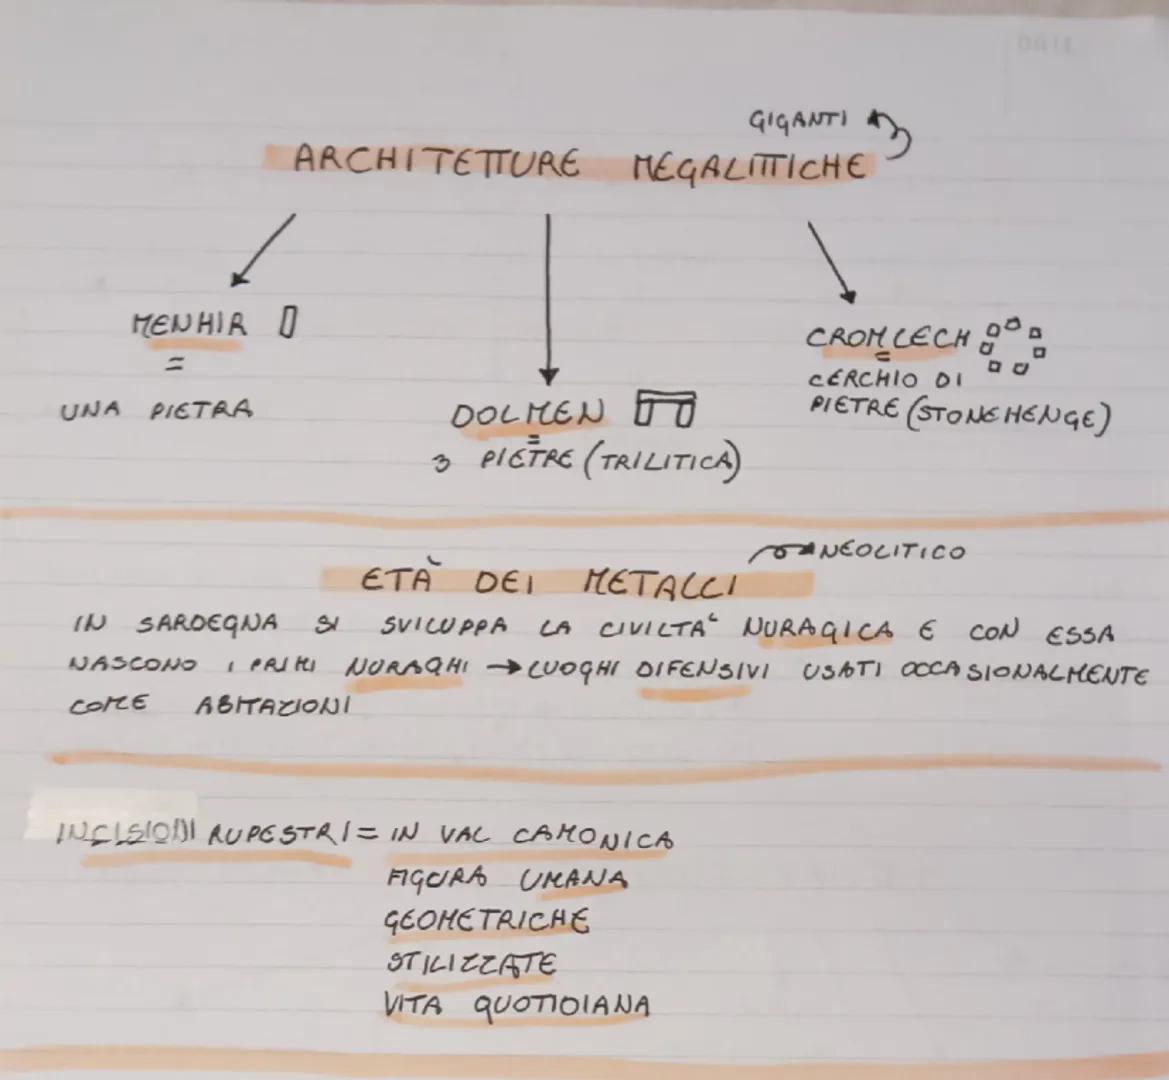 GIGANTI
ARCHITETTURE MEGALITTICHE
MENHIR
=
UNA PIETRA
DOLMEN
=
3 PIETRE (TRILITICA)
CROMLECH
=
CERCHIO DI
PIETRE (STONEHENGE)
NEOLITICO
ETÀ DEI METALLI
IN SARDEGNA SI SVILUPPA LA CIVILTÀ NURAGICA E CON ESSA
NASCONO I PRIMI NURAGHI → LUOGHI DIFENSIVI USATI OCCASIONALMENTE
COME ABITAZIONI
INCISIONI RUPESTRI = IN VAL CAMONICA
FIGURA UMANA
GEOMETRICHE
STILIZZATE
VITA QUOTIDIANA